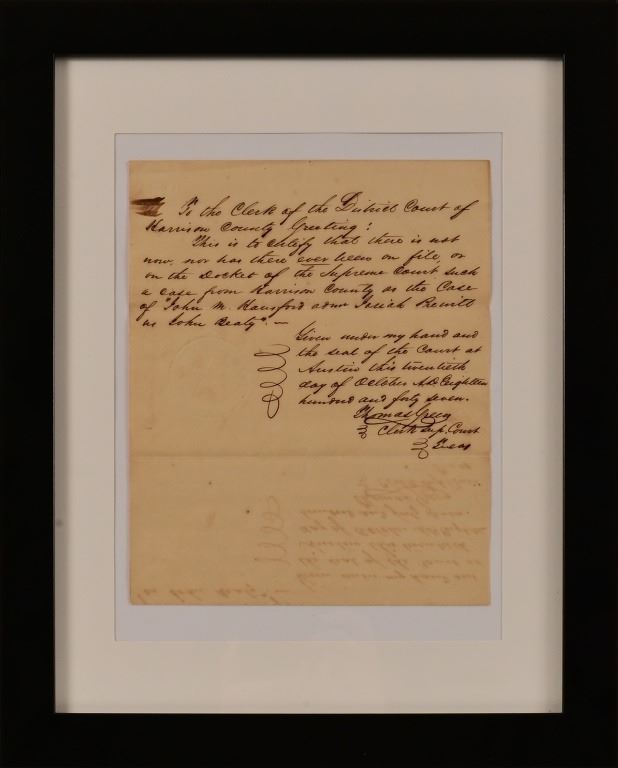 To the Clerk of the District Court of
Harrison County Greeting:
This is to certify that there is not
now, nor has there ever been on file, or
on the Docket of the Supreme Court such
a case from Harrison County as the Case
of "John M. Hansford admr Josiah Prewitt
vs John Beaty". —
Given under my hand and
the seal of the Court at
Austin this twentieth
day of October A.D. Eighteen
hundred and forty seven.
Thomas Green
Clerk Sup. Court
Texas